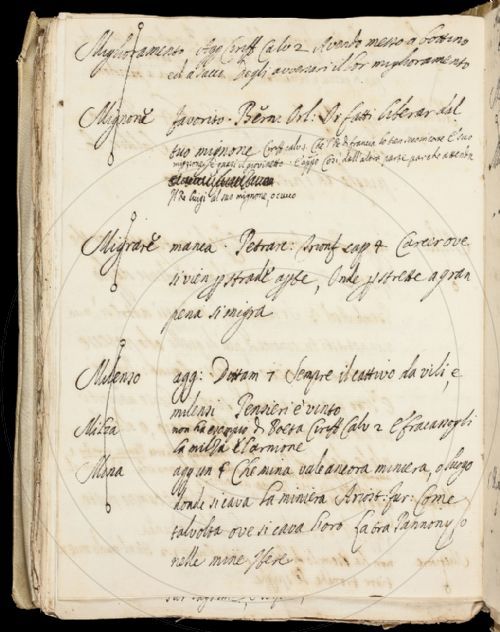 Miglioramento Agg Ciriff Calv 2 Avendo messo a bottino
ed a sacco degli avversari il lor miglioramento
Mignonē favorito. Bern: Orl: Or fatti liberar dal
tuo mignone Ciriff calv 1. Che 'l Re di francia lo tien suo
mignone
Il Re luigi al suo mignone, o cucco
Migrarē manca. Petrarc: Trionf cap 4 Carcer ove
si vien per strade aperte, Onde per strette a gran
pena si migra
Milenso agg: Dittam 1 Sempre il cattivo da vili, e
milensi Pensieri è vinto
Milza non ha esempio di Poeta Ciriff Calv 2 E fracassogli
la milza e l'arnione
Mina agg un § Che mina vale ancora miniera, o luogo
donde si cava la miniera Ariost: fur: Come
talvolta ove si cava l'oro Là tra Pannonj, o
nelle mine Ibere